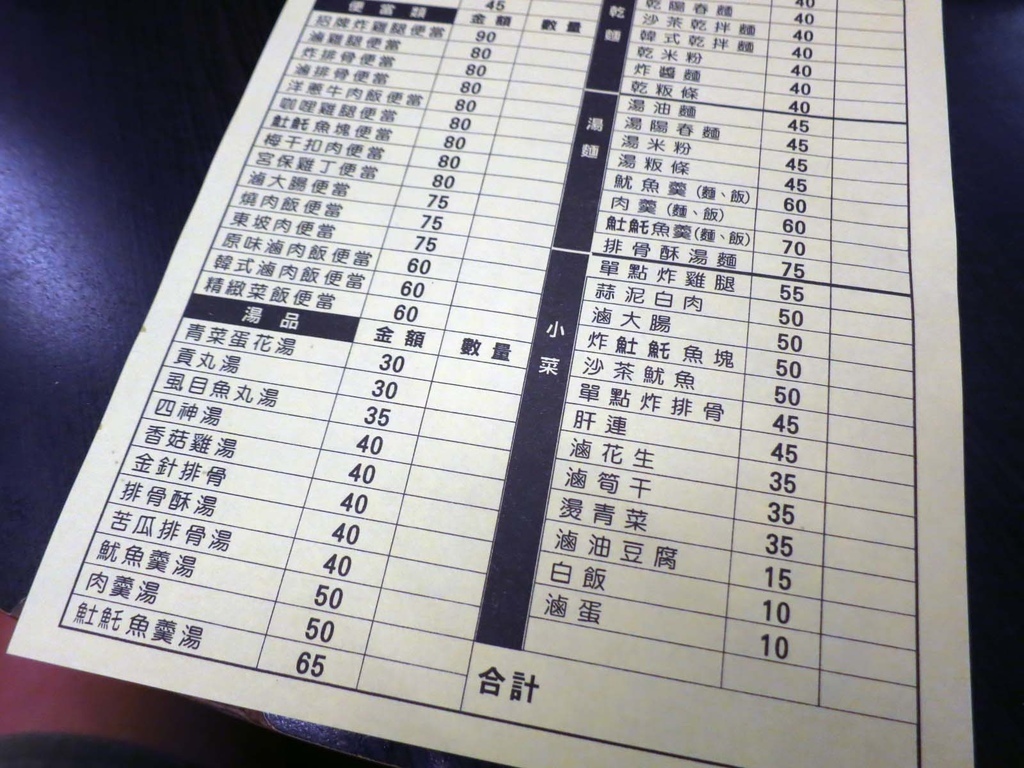 45
便當類 金額 數量
招牌炸雞腿便當 90
滷雞腿便當 80
炸排骨便當 80
滷排骨便當 80
洋蔥牛肉飯便當 80
咖哩雞腿便當 80
𩵚魠魚塊便當 80
梅干扣肉便當 80
宮保雞丁便當 80
滷大腸便當 75
燒肉飯便當 75
東坡肉便當 75
原味滷肉飯便當 60
韓式滷肉飯便當 60
精緻菜飯便當 60
湯品 金額 數量
青菜蛋花湯 30
貢丸湯 30
虱目魚丸湯 35
四神湯 40
香菇雞湯 40
金針排骨 40
排骨酥湯 40
苦瓜排骨湯 40
魷魚羹湯 50
肉羹湯 50
𩵚魠魚羹湯 65
乾麵
40
乾陽春麵 40
沙茶乾拌麵 40
韓式乾拌麵 40
乾米粉 40
炸醬麵 40
乾粄條 40
湯麵
湯油麵 45
湯陽春麵 45
湯米粉 45
湯粄條 45
魷魚羹(麵、飯) 60
肉羹(麵、飯) 60
𩵚魠魚羹(麵、飯) 70
排骨酥湯麵 75
小菜
單點炸雞腿 55
蒜泥白肉 50
滷大腸 50
炸𩵚魠魚塊 50
沙茶魷魚 50
單點炸排骨 45
肝連 45
滷花生 35
滷筍干 35
燙青菜 35
滷油豆腐 15
白飯 10
滷蛋 10
合計